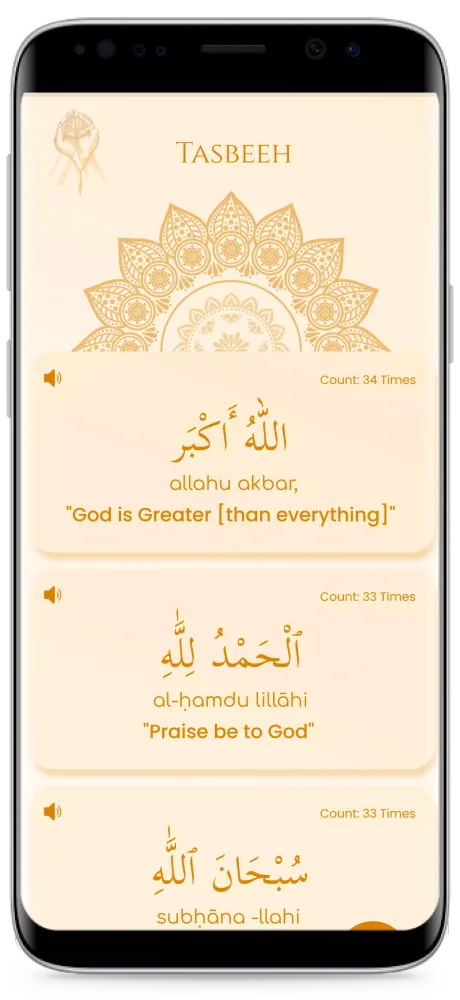 Tasbeeh
Count: 34 Times
اللّٰهُ أَكْبَر
allahu akbar,
"God is Greater [than everything]"
Count: 33 Times
ٱلْحَمْدُ لِلَّٰهِ
al-ḥamdu lillāhi
"Praise be to God"
Count: 33 Times
سُبْحَانَ ٱللَّٰهِ
subḥāna -llahi